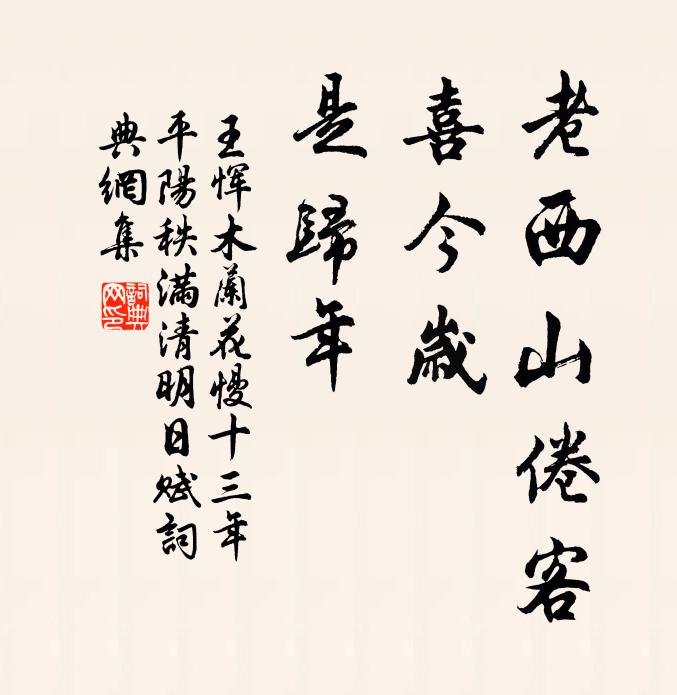 老西山倦客
喜今歲
是歸年
王惲木蘭花慢十三年
平陽秩滿清明日賦詞
典網集
詞典
网印